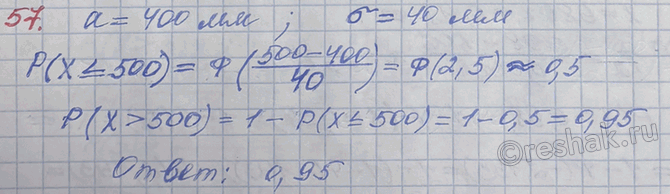 57. a = 400 мм ; σ = 40 мм
P(X ≤ 500) = Ф((500-400)/40) = Ф(2,5) ≈ 0,5
P(X > 500) = 1 - P(X ≤ 500) = 1 - 0,5 = 0,95
Ответ: 0,95
©reshak.ru